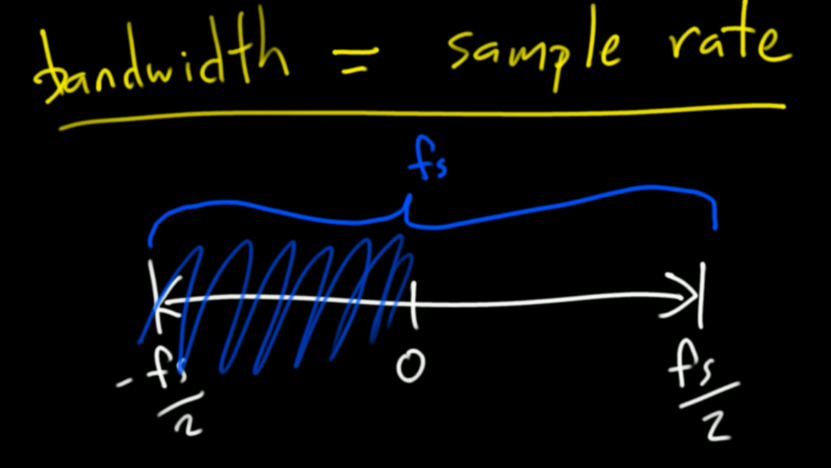 bandwidth = sample rate
fs
-fs/2 0 fs/2